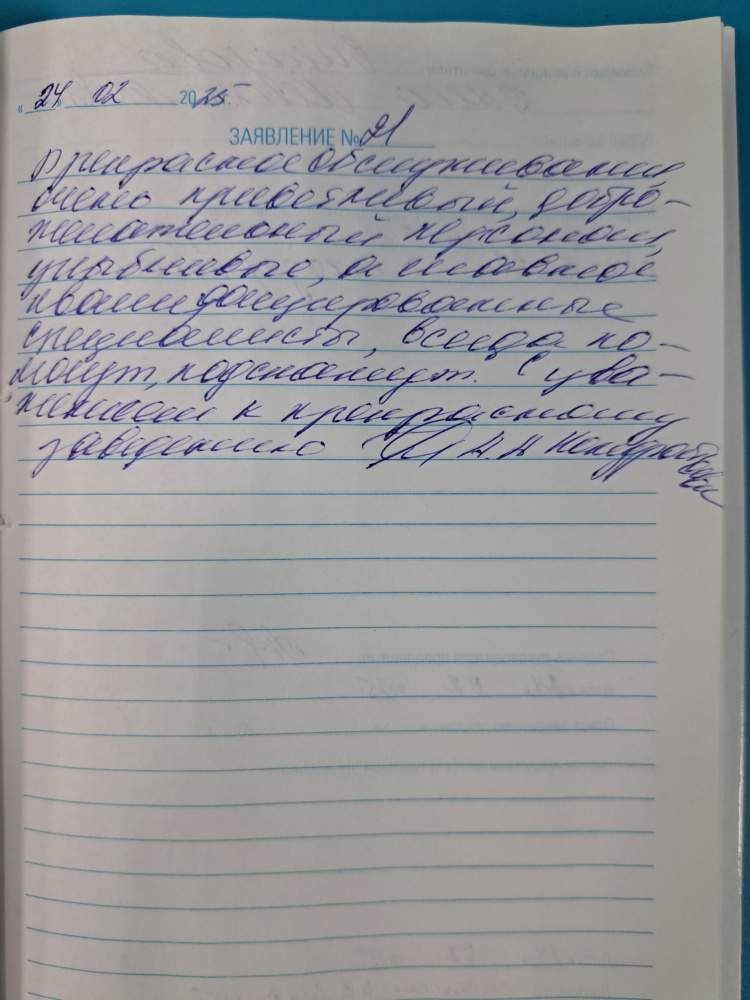 « 24 » 02 2025г.
ЗАЯВЛЕНИЕ № 21
Прекрасное обслуживание,
очень приветливый, добро-
желательный персонал,
улыбчивые, а главное
квалифицированные
специалисты, всегда по-
могут, подскажут. С ува-
жением к прекрасному
заведению